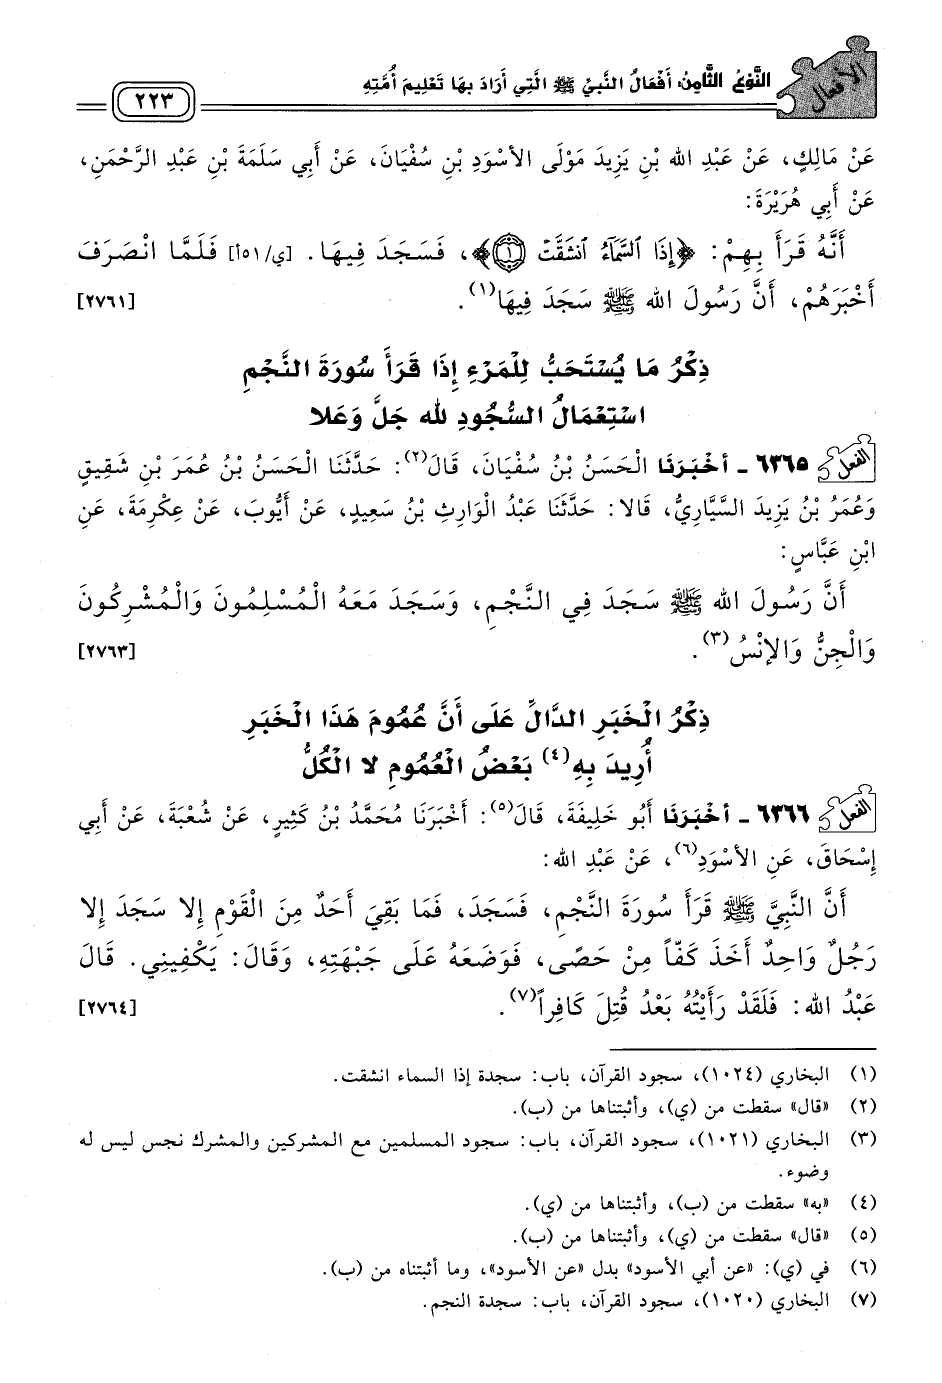 الأفعال
النَّوْعُ الثَّامِنُ: أَفْعَالُ النَّبِيِّ ﷺ الَّتِي أَرَادَ بِهَا تَعْلِيمَ أُمَّتِهِ
٢٢٣
عَنْ مَالِكٍ، عَنْ عَبْدِ الله بْنِ يَزِيدَ مَوْلَى الأَسْوَدِ بْنِ سُفْيَانَ، عَنْ أَبِي سَلَمَةَ بْنِ عَبْدِ الرَّحْمَنِ،
عَنْ أَبِي هُرَيْرَةَ:
أَنَّهُ قَرَأَ بِهِمْ: ﴿إِذَا ٱلسَّمَآءُ ٱنشَقَّتْ ۝١﴾، فَسَجَدَ فِيهَا. [ي/٥١أ] فَلَمَّا انْصَرَفَ
أَخْبَرَهُمْ، أَنَّ رَسُولَ الله ﷺ سَجَدَ فِيهَا(١). [٢٧٦١]
ذِكْرُ مَا يُسْتَحَبُّ لِلْمَرْءِ إِذَا قَرَأَ سُورَةَ النَّجْمِ
اسْتِعْمَالُ السُّجُودِ لله جَلَّ وَعَلا
الفعل ٦٣٦٥ - أَخْبَرَنَا الْحَسَنُ بْنُ سُفْيَانَ، قَالَ(٢): حَدَّثَنَا الْحَسَنُ بْنُ عُمَرَ بْنِ شَقِيقٍ
وَعُمَرُ بْنُ يَزِيدَ السَّيَّارِيُّ، قَالا: حَدَّثَنَا عَبْدُ الْوَارِثِ بْنُ سَعِيدٍ، عَنْ أَيُّوبَ، عَنْ عِكْرِمَةَ، عَنِ
ابْنِ عَبَّاسٍ:
أَنَّ رَسُولَ الله ﷺ سَجَدَ فِي النَّجْمِ، وَسَجَدَ مَعَهُ الْمُسْلِمُونَ وَالْمُشْرِكُونَ
وَالْجِنُّ وَالإِنْسُ(٣). [٢٧٦٣]
ذِكْرُ الْخَبَرِ الدَّالِّ عَلَى أَنَّ عُمُومَ هَذَا الْخَبَرِ
أُرِيدَ بِهِ(٤) بَعْضُ الْعُمُومِ لا الْكُلُّ
الفعل ٦٣٦٦ - أَخْبَرَنَا أَبُو خَلِيفَةَ، قَالَ(٥): أَخْبَرَنَا مُحَمَّدُ بْنُ كَثِيرٍ، عَنْ شُعْبَةَ، عَنْ أَبِي
إِسْحَاقَ، عَنِ الأَسْوَدِ(٦)، عَنْ عَبْدِ الله:
أَنَّ النَّبِيَّ ﷺ قَرَأَ سُورَةَ النَّجْمِ، فَسَجَدَ، فَمَا بَقِيَ أَحَدٌ مِنَ الْقَوْمِ إِلا سَجَدَ إِلا
رَجُلٌ وَاحِدٌ أَخَذَ كَفّاً مِنْ حَصًى، فَوَضَعَهُ عَلَى جَبْهَتِهِ، وَقَالَ: يَكْفِينِي. قَالَ
عَبْدُ الله: فَلَقَدْ رَأَيْتُهُ بَعْدُ قُتِلَ كَافِراً(٧). [٢٧٦٤]
(١) البخاري (١٠٢٤)، سجود القرآن، باب: سجدة إذا السماء انشقت.
(٢) «قال» سقطت من (ي)، وأثبتناها من (ب).
(٣) البخاري (١٠٢١)، سجود القرآن، باب: سجود المسلمين مع المشركين والمشرك نجس ليس له
وضوء.
(٤) «به» سقطت من (ب)، وأثبتناها من (ي).
(٥) «قال» سقطت من (ي)، وأثبتناها من (ب).
(٦) في (ي): «عن أبي الأسود» بدل «عن الأسود»، وما أثبتناه من (ب).
(٧) البخاري (١٠٢٠)، سجود القرآن، باب: سجدة النجم.